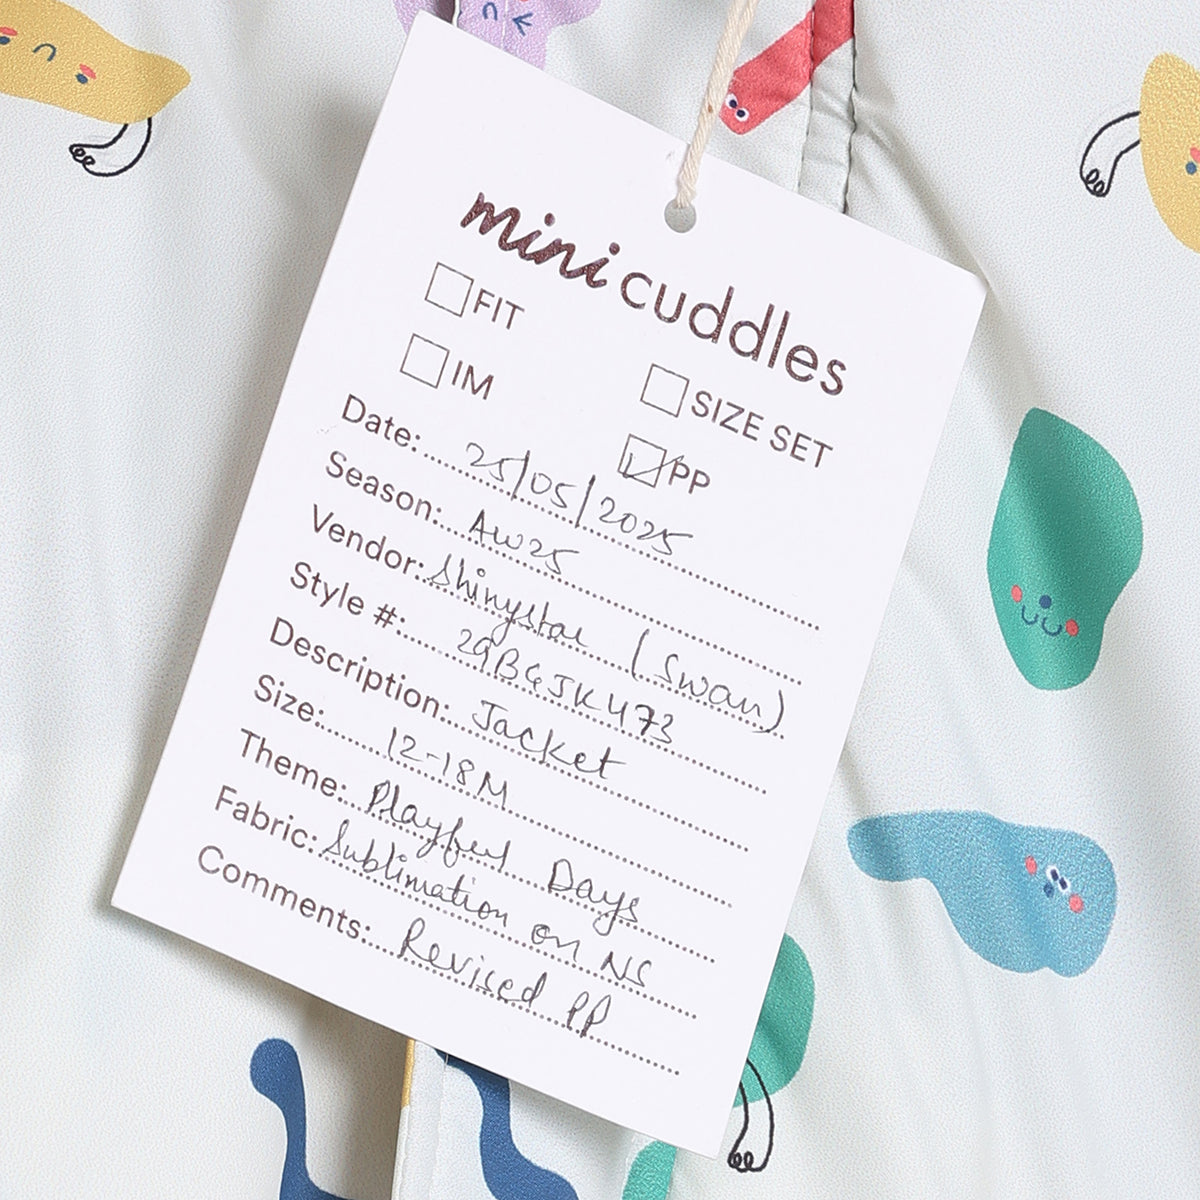 mini cuddles
FIT
SIZE SET
IM
PP
Date: 25/05/2025
Season: AW25
Vendor: Shinystar (Swan)
Style #: 29BGJK473
Description: Jacket
Size: 12-18M
Theme: Playful Days
Fabric: Sublimation on NS
Comments: Revised PP